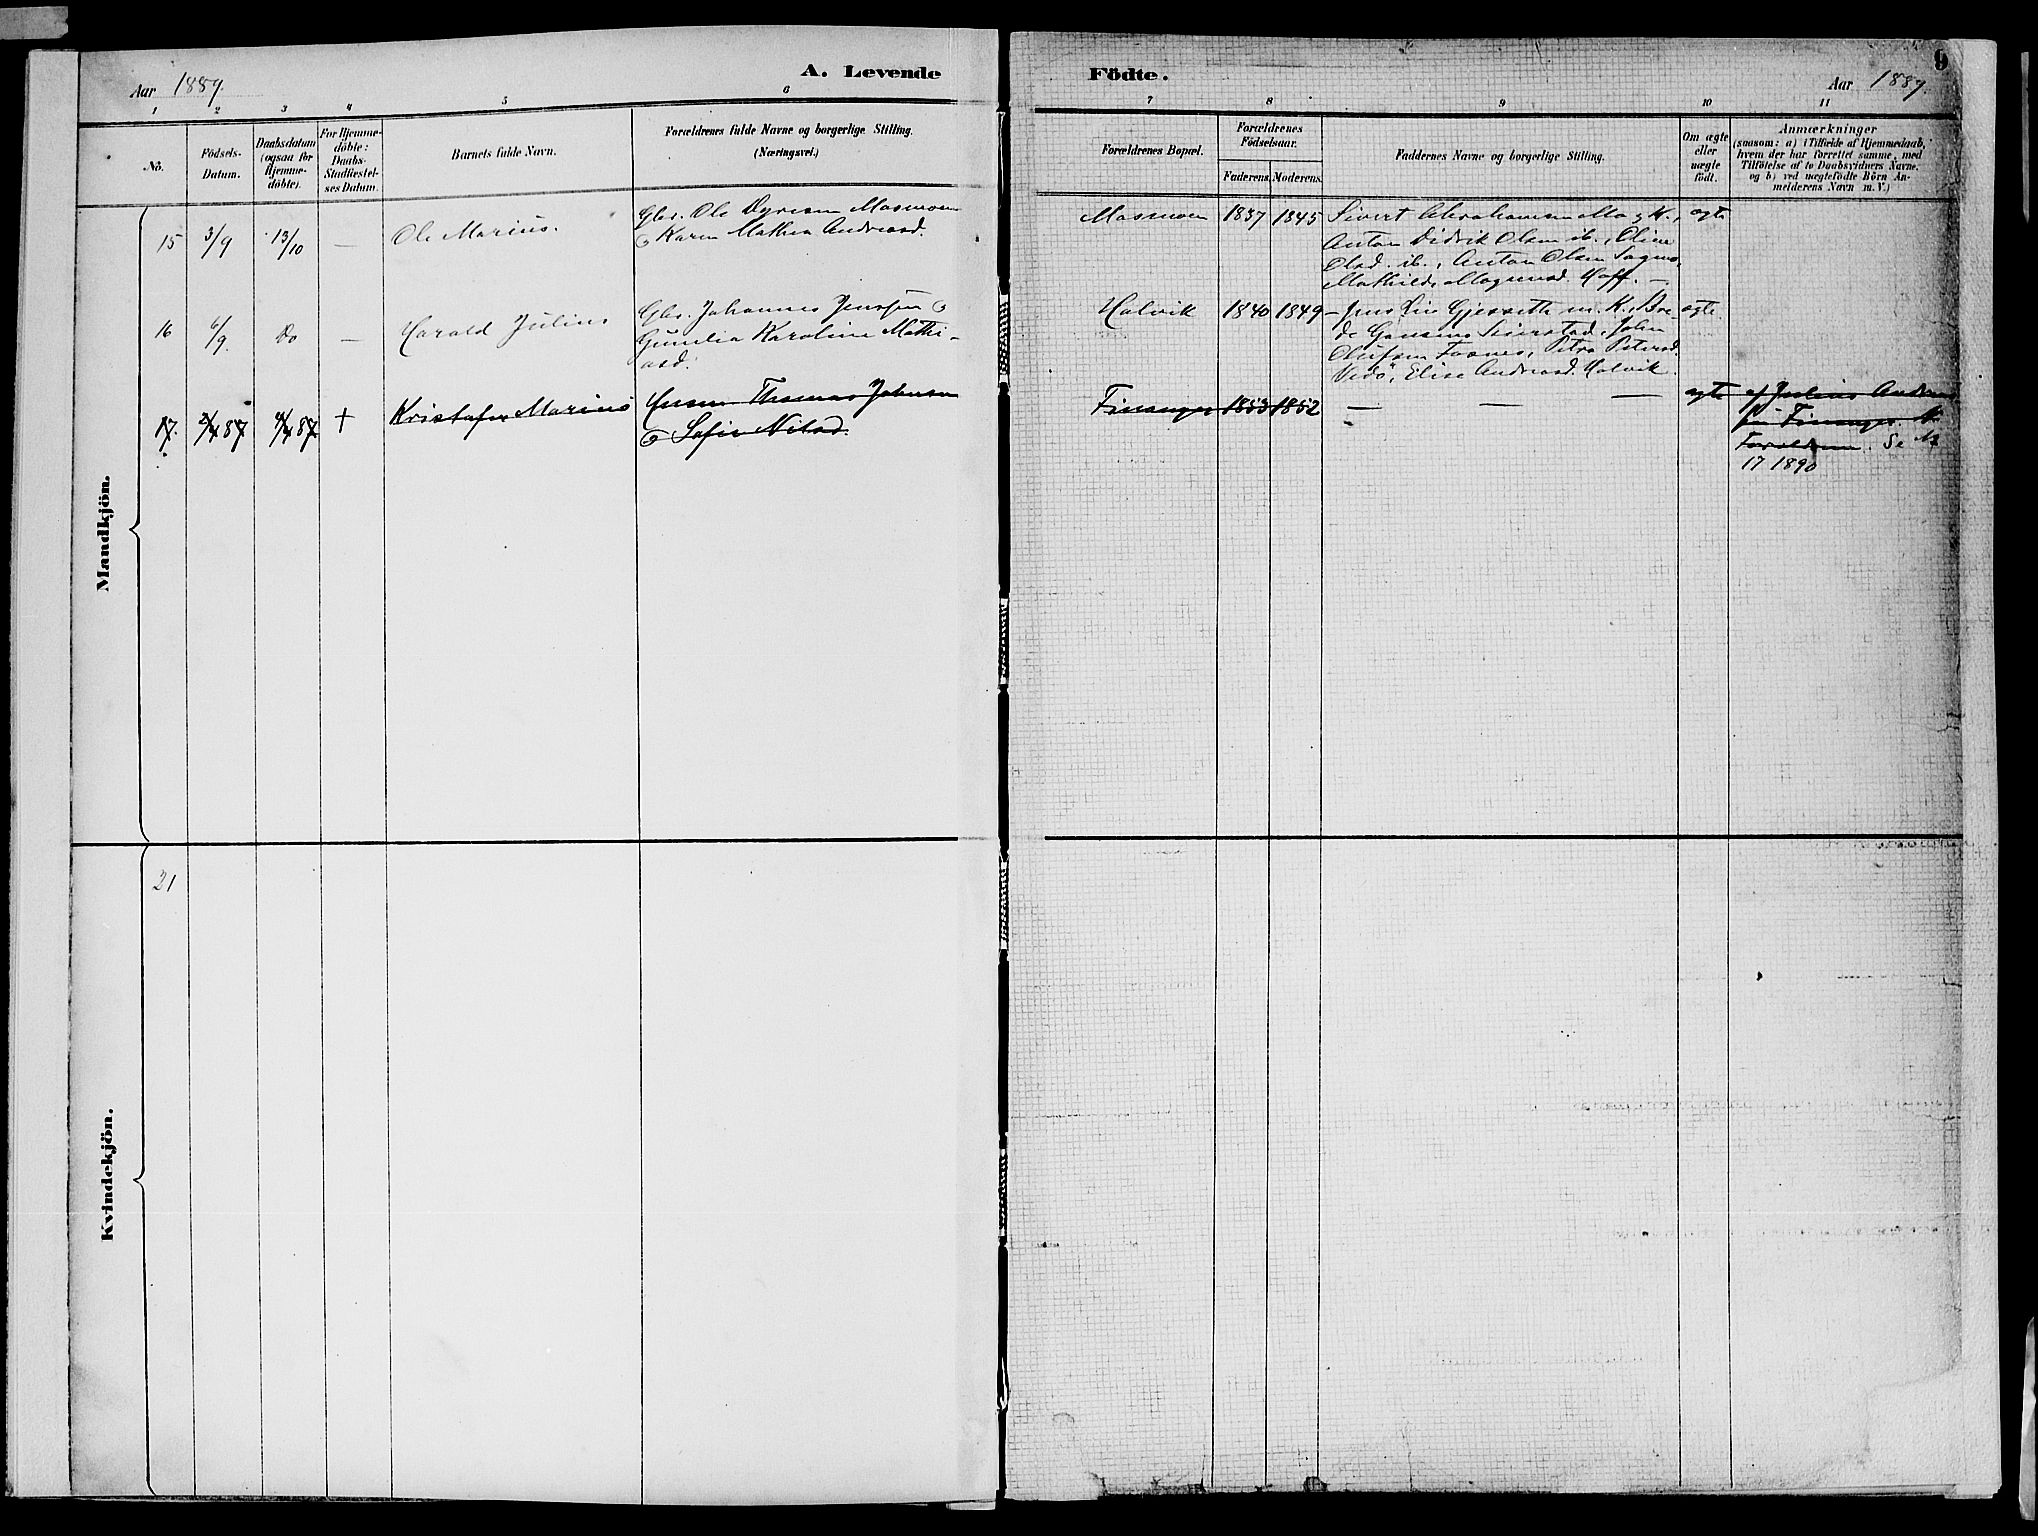 Aar 1889.
A. Levende
Födte.
Aar 1889.
9
1 2 3 4 5 6 7 8 9 10 11
No.
Födsels-
Datum.
Daabsdatum
(ogsaa for
Hjemme-
döbte).
For Hjemme-
döbte:
Daabs-
Stadfæstel-
ses Datum.
Barnets fulde Navn.
Forældrenes fulde Navne og borgerlige Stilling.
(Næringsvei.)
Forældrenes Bopæl.
Forældrenes
Födselsaar.
Faderens. Moderens.
Faddernes Navne og borgerlige Stilling.
Om ægte
eller
uægte
födt.
Anmærkninger
(saasom: a) i Tilfælde af Hjemmedaab,
hvem der har forrettet samme, med
Tilföielse af to Daabsvidners Navne,
og b) ved uægtefödte Börn An-
melderens Navn m. V.)
Mandkjön.
15 3/9 13/10 — Ole Marius.
Gbr. Ole Dyresen Mosmoen
o Karen Mathea Andreasd.
Mosmoen 1837 1845
Sivert Abrahamsen Mo g K.,
Anton Didrik Olsen ib., Oline
Olsd. ib., Anton Olsen
Mathilde Mogensd. Hoff. —
ægte
16 6/9 Do — Harald Julius
Gbr. Johannes Jenssen o
Gunelia Karoline Mathi-
asd.
Halvik 1840 1849
Gjersveth m. K.,
John
Olufsen Petra Petersd.
Vedö, Elise Andreasd. Halvik.
ægte.
17. 87 87 + Kristofer Marius
Thomas Johnsen
o Sofie Nilsd.
Finanger 1853 1852 — — —
ægte af Julius
Finanger.
Forældrene. Se No
17 1890
Kvindekjön.
21